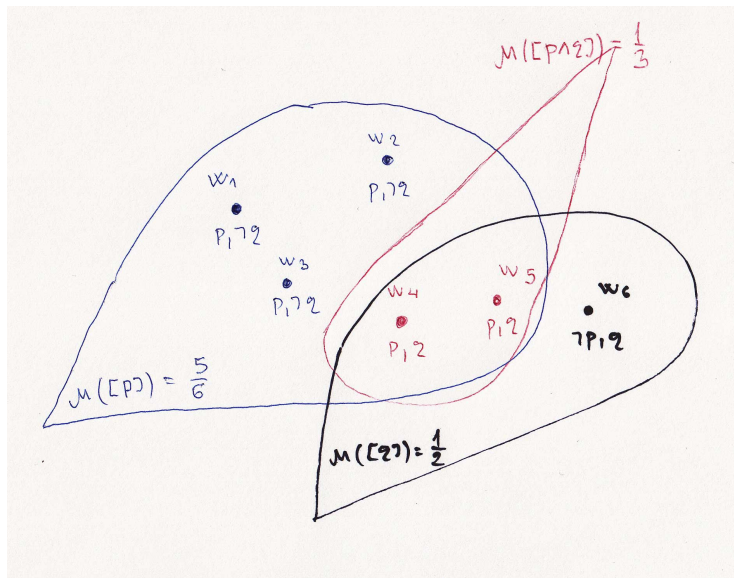 μ([p∧q]) = 1/3
w2
p,¬q
w1
p,¬q
w3
p,¬q
w5
p,q
w4
p,q
w6
¬p,q
μ([p]) = 5/6
μ([q]) = 1/2